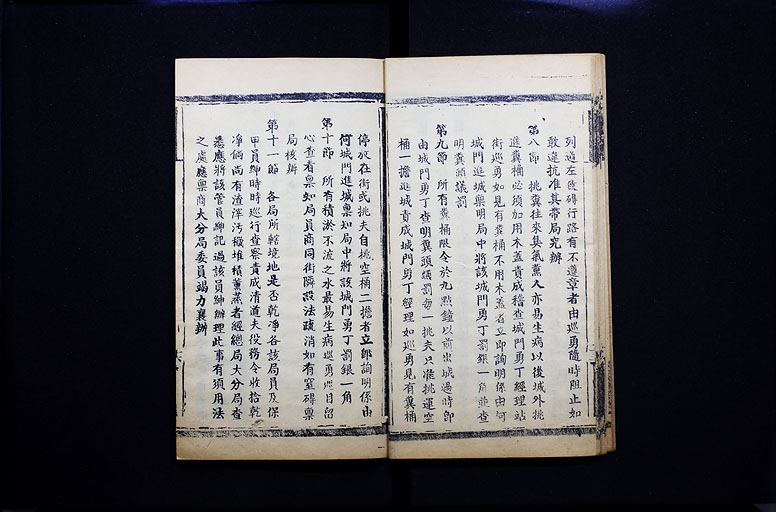 列道左致碍行路有不遵章者由巡勇隨時阻止如
敢違抗准其帶局究辦
第八節 挑糞往來臭氣薰人亦易生病以後城外挑
進糞桶必須加用木盖責成稽查城門勇丁經理站
街巡勇如見有糞桶不用木盖者立即詢明係由何
城門進城稟明局中將該城門勇丁罰銀一角並查
明糞頭議罰
第九節 所有糞桶限令於九點鐘以前出城過時即
由城門勇丁查明糞頭議罰每一挑夫只准挑運空
桶一擔進城責成城門勇丁經理如巡勇見有糞桶
停放在街或挑夫自挑空桶二擔者立即詢明係由
何城門進城稟知局中將該城門勇丁罰銀一角
第十節 所有積淤不流之水最易生病巡勇逐日留
心查看稟知局員商同街隣設法疏消如有窒碍稟
局核辦
第十一節 各局所轄境地是否乾凈各該局員及保
甲員紳時時巡行查察責成清道夫役務令收拾乾
凈倘尚有渣滓污穢堆積薰蒸者經總局大分局查
悉應將該管員紳記過該員紳辦理此事有須用法
之處應稟商大分局委員竭力襄辦